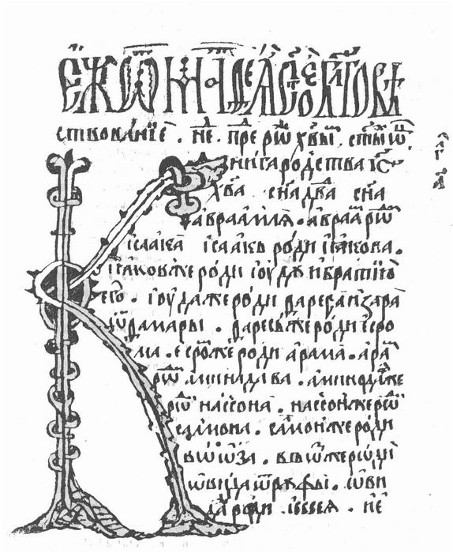 ствованїе . не . пре рⷤѡ хв҃ы . ст҃ыⷯ ѿ
Книга родства іс҃
хв҃а сн҃а дв҃да сн҃а
авраамлѧ . авраⷨ рⷤѡ
ісаака ісаакъ роди іакова .
іаковже роди іоудꙋ и братїю
его . іоуда же роди фареса и зара
ѿ фамары . фаресъже роди есро
ма . есроⷨже роди арама . араⷨ
рⷤѡ аминадава . аминодаⷡже
рⷤѡ нассона . насонже рⷤѡ
салмона . салмонже роди
воѡза . воѡⷥже роди
ѡвида ѿ рꙋфы . ѡви
дⷤа роди іессеѧ . іе